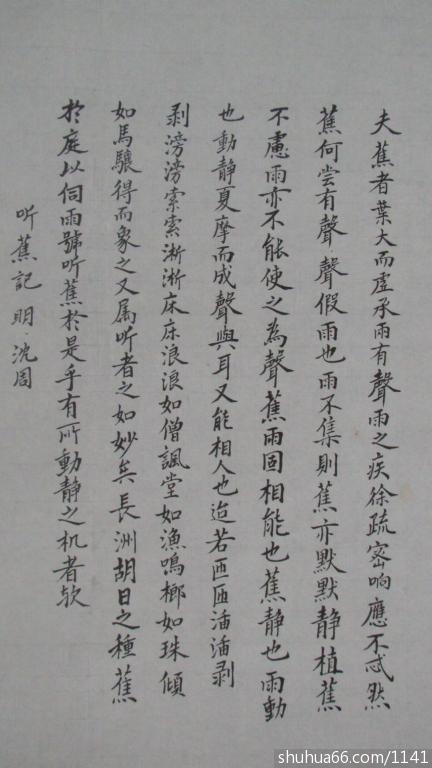 夫蕉者葉大而虛承雨有聲雨之疾徐疏密响應不忒然
蕉何尝有聲聲假雨也雨不集則蕉亦默默静植蕉
不慮雨亦不能使之為聲蕉雨固相能也蕉静也雨動
也動静戛摩而成聲與耳又能相人也迨若匝匝潘潘剥
剥滂滂索索淅淅床床浪浪如僧諷堂如漁鳴榔如珠傾
如馬驤得而象之又属听者之如妙矣長洲胡日之種蕉
於庭以伺雨號听蕉於是乎有所動静之机者欤
听蕉記明沈周
shuhua66.com/1141